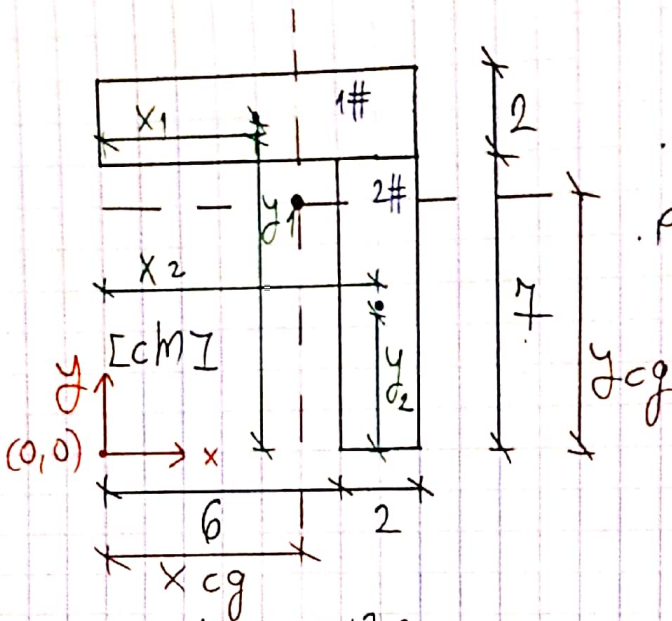 1#
x1
2
2#
y1
x2
7
[cm]
y2
ycg
y
(0,0)
x
6
2
x cg